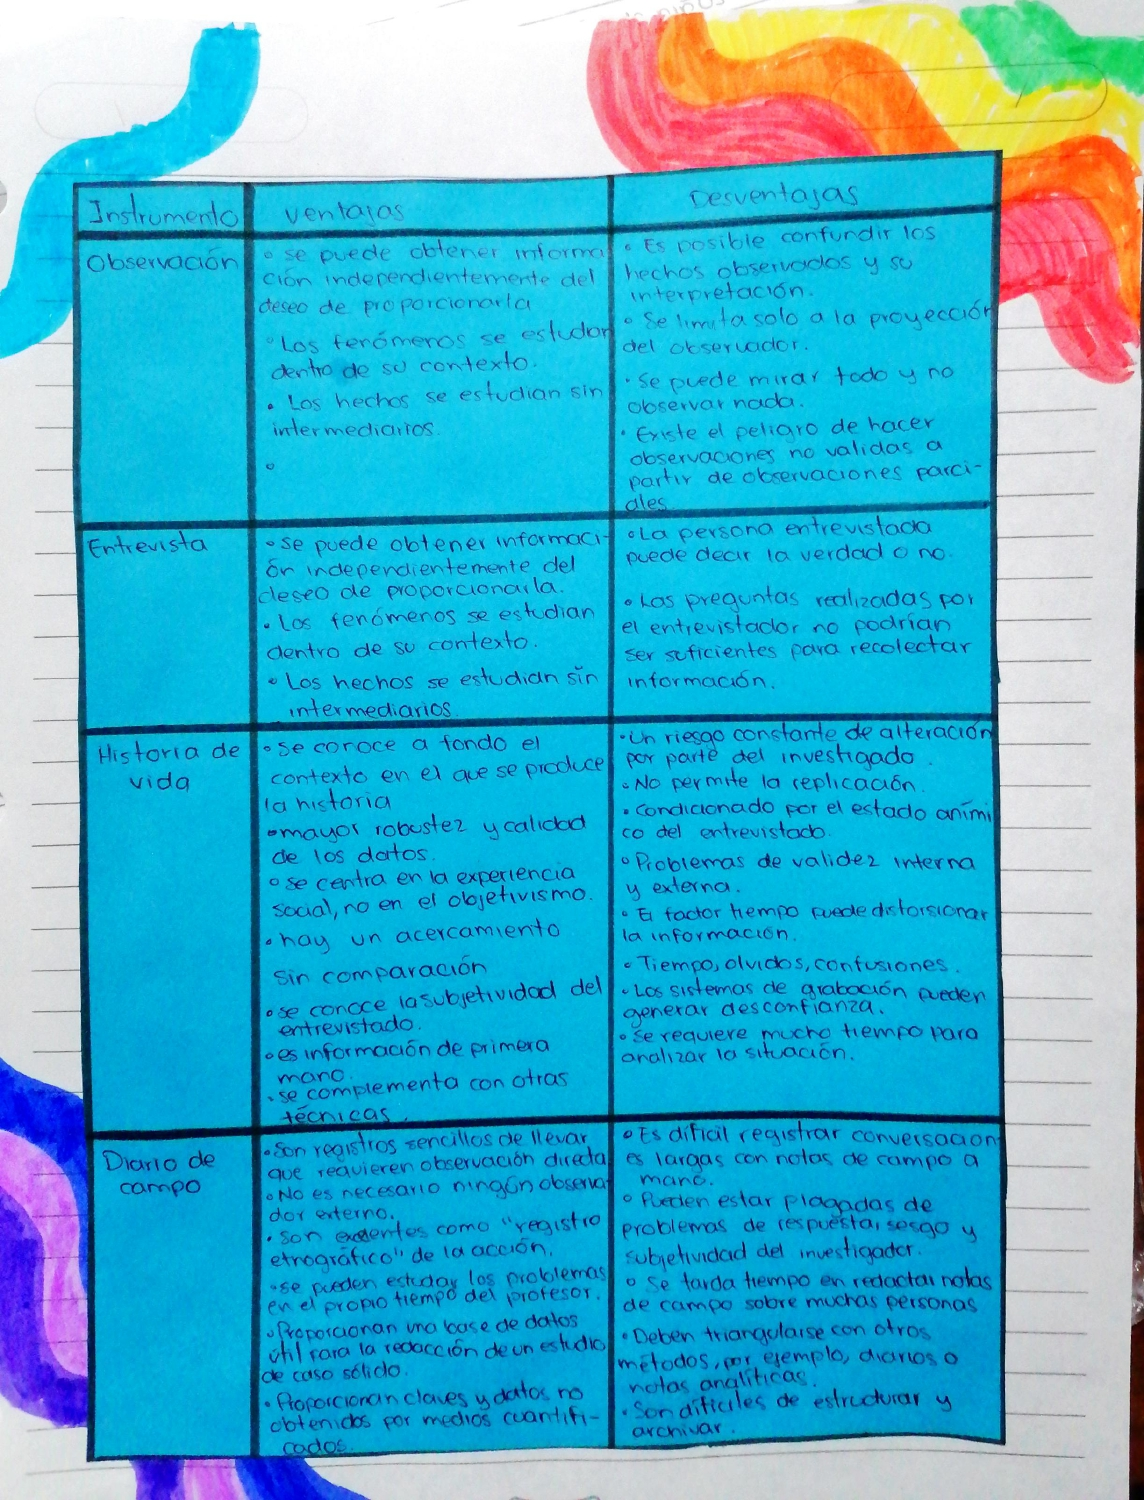 Instrumento
Ventajas
Desventajas
Observación
• se puede obtener informa
ción independientemente del
deseo de proporcionarla
• Los fenómenos se estudian
dentro de su contexto.
• Los hechos se estudian sin
intermediarios.
• Es posible confundir los
hechos observados y su
interpretación.
• Se limita solo a la proyección
del observador.
• Se puede mirar todo y no
observar nada.
• Existe el peligro de hacer
observaciones no validas a
partir de observaciones parci-
ales
Entrevista
• Se puede obtener informaci-
ón independientemente del
deseo de proporcionarla.
• Los fenómenos se estudian
dentro de su contexto.
• Los hechos se estudian sin
intermediarios
• La persona entrevistada
puede decir la verdad o no.
• Las preguntas realizadas por
el entrevistador no podrían
ser suficientes para recolectar
información.
Historia de
vida
• Se conoce a fondo el
contexto en el que se produce
la historia
• mayor robustez y calidad
de los datos.
• se centra en la experiencia
social, no en el objetivismo.
• hay un acercamiento
sin comparación
• se conoce la subjetividad del
entrevistado.
• es información de primera
mano.
• se complementa con otras
técnicas.
• Un riesgo constante de alteración
por parte del investigado.
• No permite la replicación.
• Condicionado por el estado aními
co del entrevistado.
• Problemas de validez interna
y externa.
• El factor tiempo puede distorsionar
la información.
• Tiempo, olvidos, confusiones.
• Los sistemas de grabación pueden
generar desconfianza.
• Se requiere mucho tiempo para
analizar la situación.
Diario de
campo
• Son registros sencillos de llevar,
que requieren observación directa
• No es necesario ningún observa
dor externo.
• Son como "registro
etnográfico" de la acción.
• Se pueden estudar los problemas
en el propio tiempo del profesor.
• Proporcionan una base de datos
útil para la redacción de un estudio
de caso sólido.
• Proporcionan claves y datos no
obtenidos por medios cuantifi-
cados.
• Es dificil registrar conversacion
es largas con notas de campo a
mano.
• Pueden estar plagadas de
problemas de respuesta, sesgo y
subjetividad del investigador.
• Se tarda tiempo en redactar notas
de campo sobre muchas personas
• Deben triangularse con otros
métodos, por ejemplo, diarios o
notas analíticas.
• Son dificiles de estructurar y
archivar.